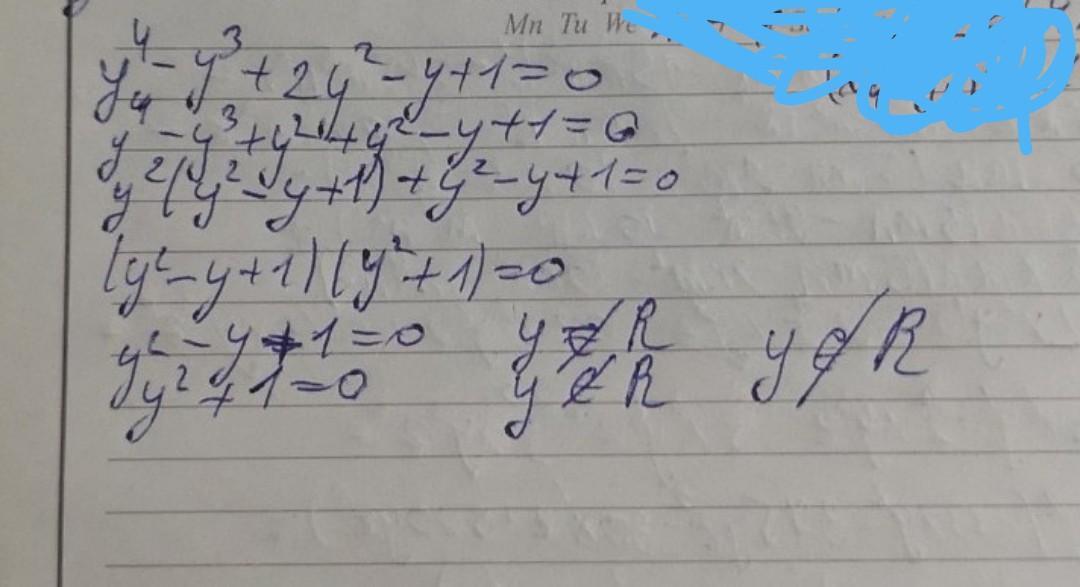 Mn Tu We
y⁴ - y³ + 2y² - y + 1 = 0
y⁴ - y³ + y² + y² - y + 1 = 0
y²(y² - y + 1) + y² - y + 1 = 0
(y² - y + 1)(y² + 1) = 0
y² - y + 1 = 0 y ∉ R y ∉ R
y² + 1 = 0 y ∉ R